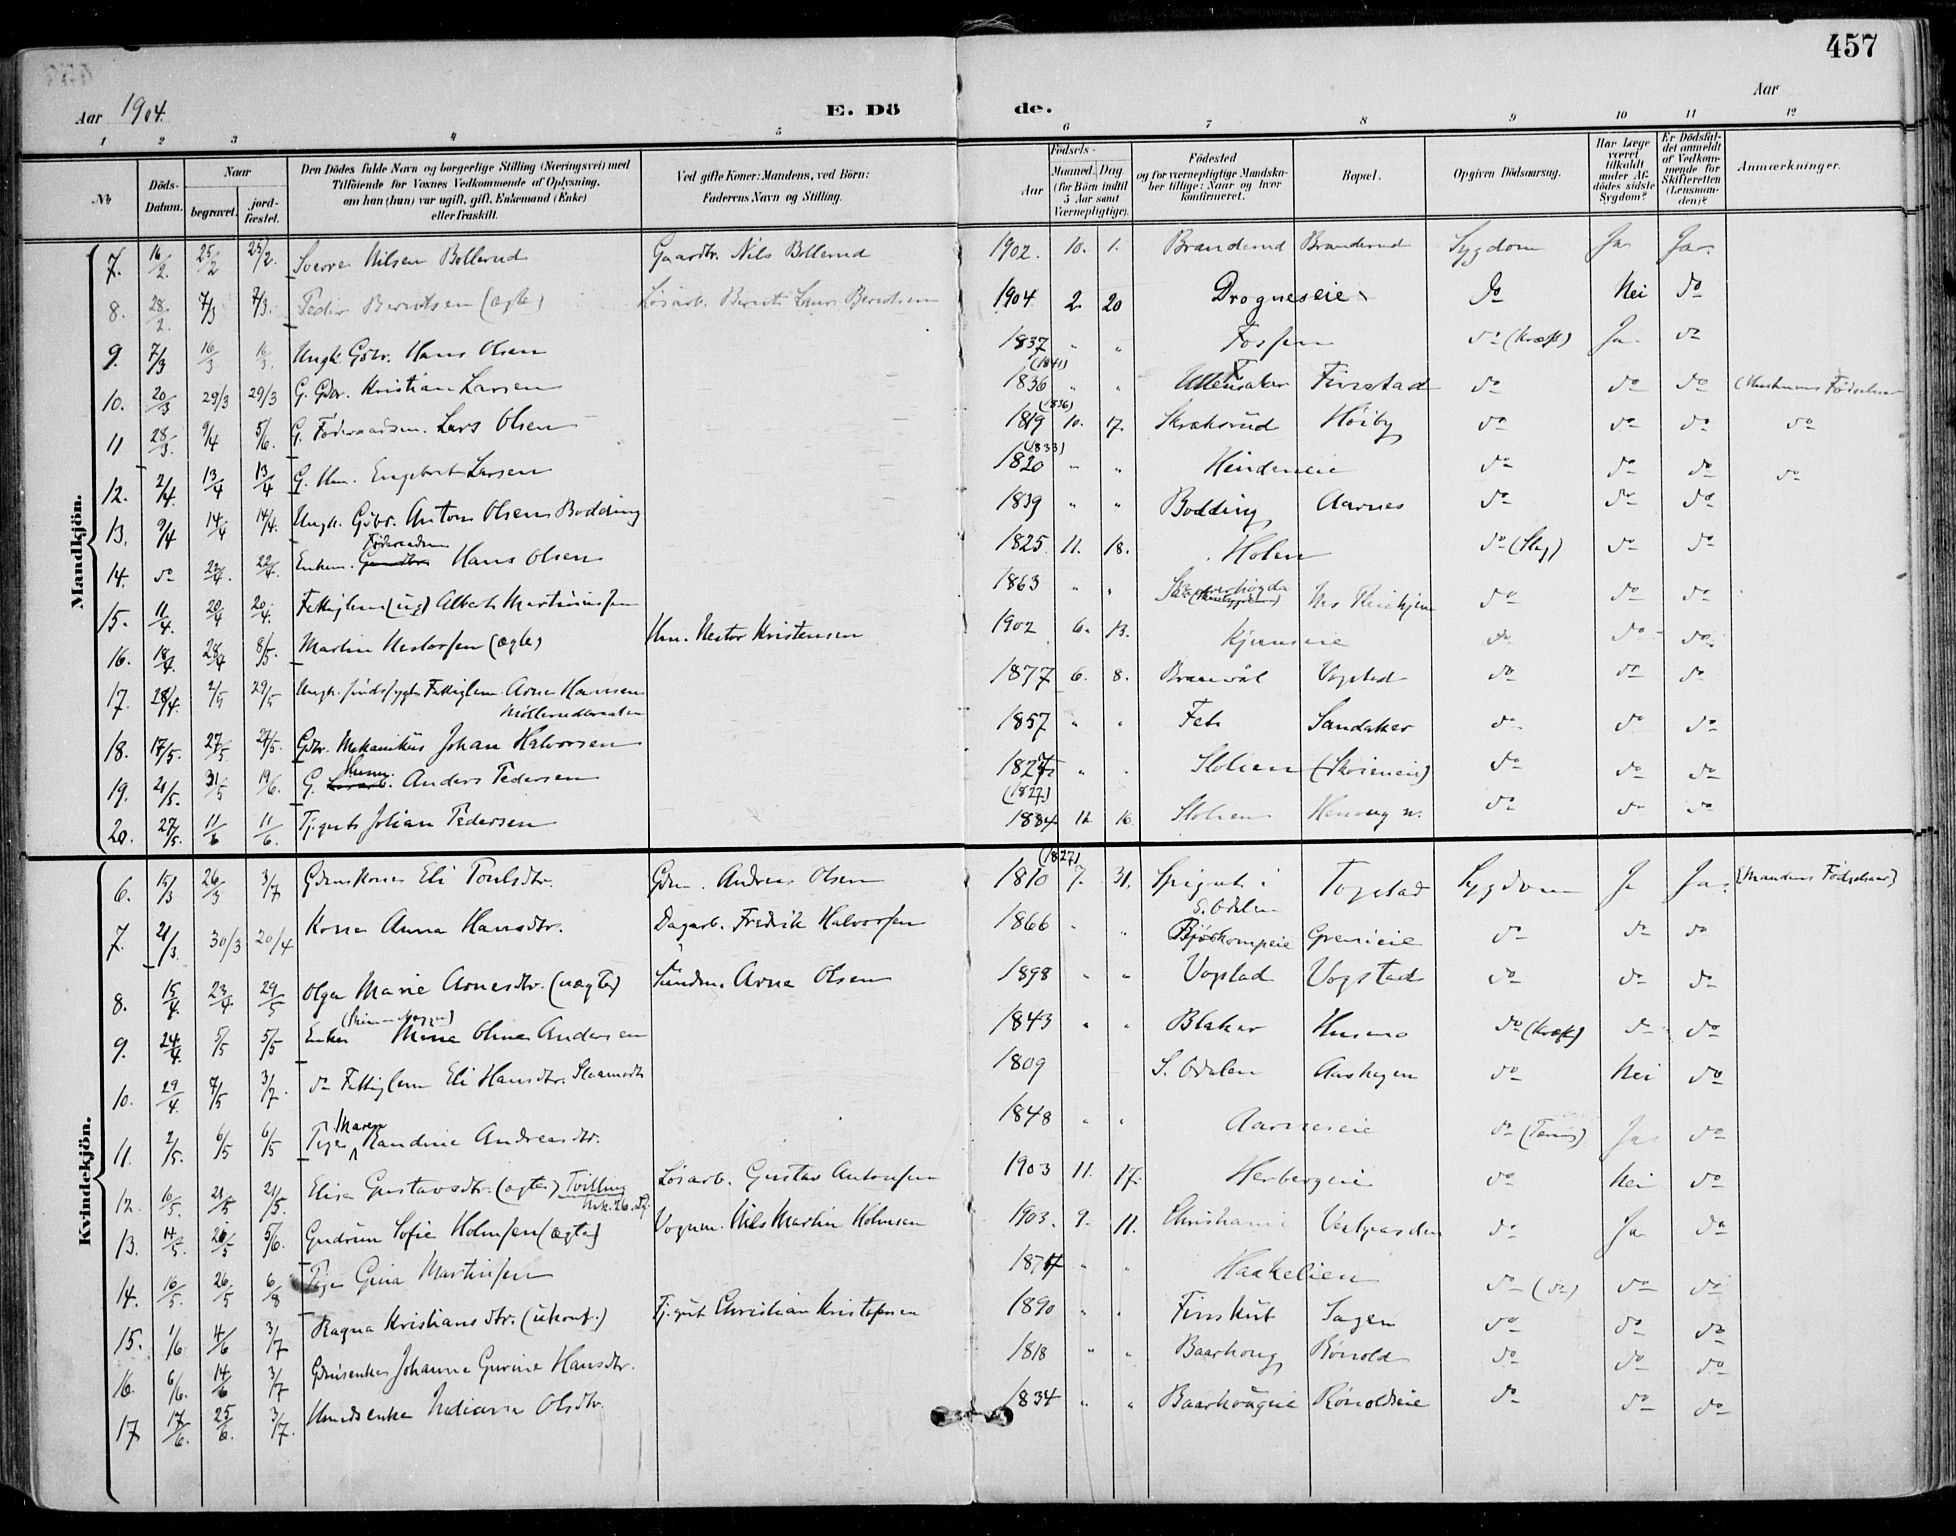 457
Aar 1904.
E. Dö
de.
Aar
1 2 3 4 5 6 7 8 9 10 11 12
№
Döds-Datum.
Naar
begravet.
jord-fæstet.
Den Dödes fulde Navn og borgerlige Stilling (Næringsvei) med
Tilföiende for Voxnes Vedkommende af Oplysning,
om han (hun) var ugift, gift, Enkemand (Enke)
eller fraskilt.
Ved gifte Koner: Mandens, ved Börn:
Faderens Navn og Stilling.
Födsels-
Aar
Maaned. Dag
(for Börn indtil
5 Aar samt
Værnepligtige).
Födested
og for værnepligtige Mandskaber tillige: Naar og hvor
konfirmeret.
Bopæl.
Opgiven Dödsaarsag.
Har Læge været tilkaldt under Afdödes sidste Sygdom?
Er Dödsfaldet anmeldt af Vedkommende for Skifteretten (Lensmanden)?
Anmærkninger.
Mandkjön.
7. 16/2. 25/2 25/2. Sverre Nilsen Bollerud Gaardbr. Nils Bollerud 1902. 10. 1. Branderud Branderud Sygdom Ja Ja.
8. 28/2. 7/3 7/3. Peder Berntsen (ægte) Løsarb. Bernt Laur. Berntsen 1904 2 20 Drogneseie do Nei do
9. 7/3 16/3 16/3. Ungk. Gdbr. Hans Olsen 1837 " " Fossum do (Kræft) Ja. do
10. 20/3 29/3 29/3 G. Gdbr. Kristian Larsen (1841) 1836 " " Finstad do do do
11 28/3. 9/4 5/6. G. Føderaadsm. Lars Olsen (1836) 1819 10. 17. Skraksrud Høiby do do do do
12. 2/4 13/4 13/4 G. Hm. Engebret Larsen (1833) 1820 " " do do do do
13. 9/4 14/4 14/4. Ungk. Gdbr. Anton Olsen Bodding 1839 " " Bodding Aarnes do do do
14. do 22/4. 22/4. Enkem. Føderaadsm Hans Olsen 1825 11. 18. Holen do (Slag) do do
15. 11/4. 20/4 20/4. Fattiglem (ug) Albert Martinussen 1863 " " do do do
16. 18/4. 28/4 8/5. Martin Nestorsen (ægte) Hm. Nestor Kristensen 1902 6. 13. do do do
17. 28/4. 2/5 29/5 Ungk. sindssyg Fattiglem Arne Hansen 1877 6. 8. Vogstad do do do
18. 17/5. 27/5 27/5. Gdbr. Mekanikus Johan Halvorsen 1857 " " Fet Sandaker do do do
19. 21/5. 31/5 19/6. G. Husm. Anders Pedersen 1827 " " Stolsen do do do
20. 27/5. 11/6 11/6. Tj.gut Johan Pedersen (1827) 1884 12 16 do do do
Kvindekjön.
6. 15/3 26/3 3/7 Gdmskone Eli Poulsdtr. Gdm. Andreas Olsen (1827) 1810 7. 31. S. Odalen Togstad Sygdom Ja Ja. (Mandens Fødselsaar)
7. 21/3 30/3 20/4 Kone Anna Hansdtr. Dagarb. Fredrik Halvorsen 1866 " " Grenieie do do do
8. 15/4 23/4 29/5 Olga Marie Arnesdtr. (uægte) Arne Olsen 1898 " " Vogstad Vogstad do do do
9. 24/4. 5/5 5/5 Enke Oline Andersen 1843 " " Blaker Husmo do (Kræft) do do
10. 29/4. 7/5 3/7. do Fattiglem Eli Hansdtr. 1809 S. Odalen Aashagen do Nei do
11. 2/5. 6/5 6/5 Pige Maren Randine Andreasdtr. 1848 " " Aarneseie do (Tæring) Ja do
12. 10/5. 21/5 21/5. Elise Gustavsdtr. (ægte) Tvilling Løsarb. Gustav Antonsen 1903 11. 17. Herbergeie do Nei do
13. 14/5. 26/5 5/6. Gudrun Sofie Holmsen (ægte) Vognm. Nils Martin Holmsen 1903. 9. 11. Christiania do Ja do
14. 16/5. 26/5 6/8 Pige Gina Martinsen " " Haakelien do (do) do do
15. 1/6 4/6 3/7 Ragna Kristiansdtr. (ukonf.) Tj.gut Christian Kristofersen 1890 " " Sagen do do do
16. 6/6. 14/6 3/7 Gdmsenke Johanne Gurine Hansdtr. 1818 " " Baarhoug Rönold do do do
17 17/6. 25/6. 3/7. Husmdsenke Indiane Olsdtr. 1834 " " Baarhougeie Rönoldseie do do do